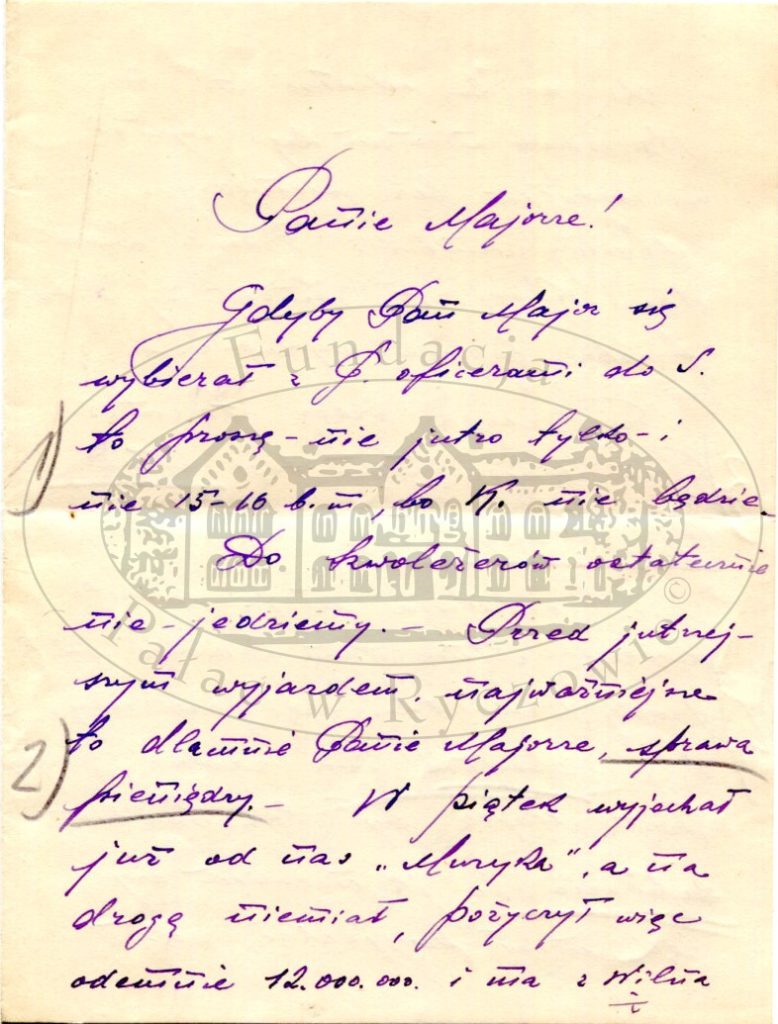 Panie Majorze!
Gdyby Pan Major się
wybierał z P. oficerami do S.
to proszę - nie jutro tylko - i
1)
nie 15-16 b.m, bo K. nie będzie.
Do szwoleżerów ostatecznie
nie - jedziemy. - Przed jutrzej-
szym wyjazdem. najważniejsze
to dlamnie Panie Majorze, sprawa
2)
pieniędzy. - W piątek wyjechał
już od nas „Muzyka", a na
drogę niemiał, pożyczył więc
odemnie 12.000.000. i ma z Wilna
Fundacja
Pałac w Ryczowie
©